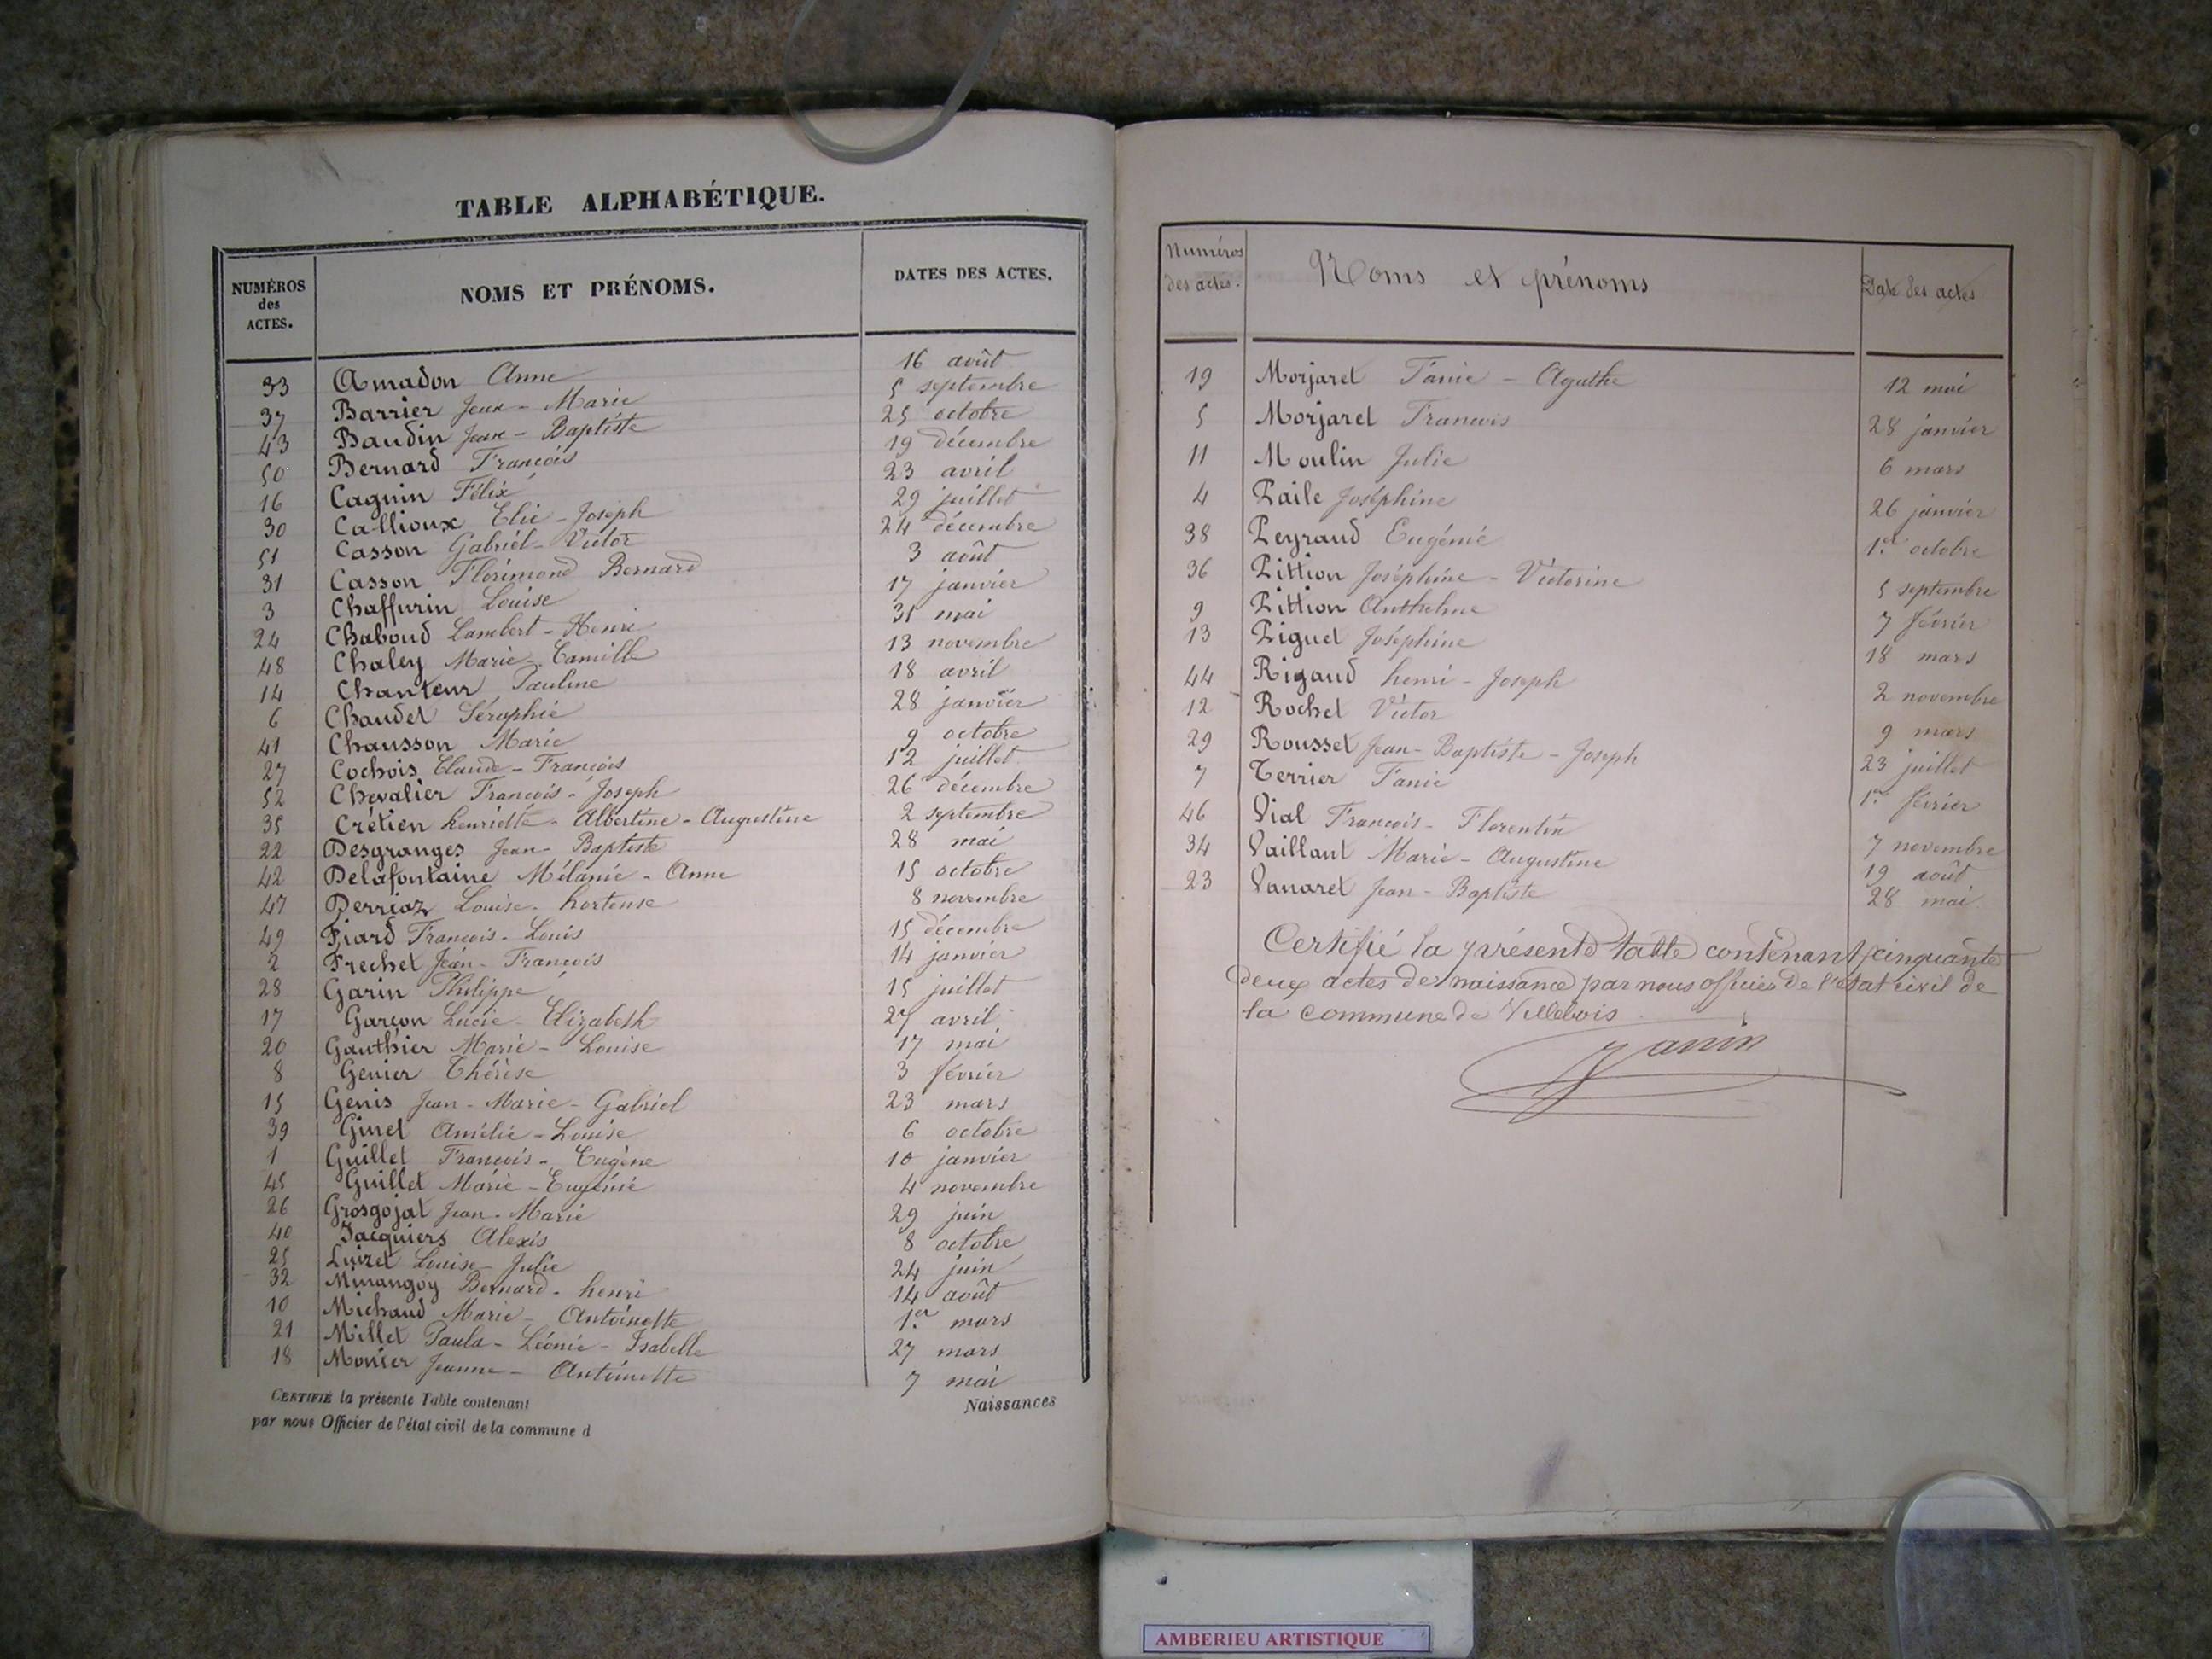 TABLE ALPHABÉTIQUE.
NUMÉROS des ACTES. NOMS ET PRÉNOMS. DATES DES ACTES.
33 Amadon Anne 16 août
37 Barrier Jean-Marie 5 septembre
43 Baudin Jean-Baptiste 25 octobre
50 Bernard François 19 décembre
16 Cagnin Félix 23 avril
30 Callioux Elie-Joseph 29 juillet
51 Casson Gabriel-Victor 24 décembre
31 Casson Florimond Bernard 3 août
3 Chaffurin Louise 17 janvier
24 Chaboud Lambert-Henri 31 mai
48 Chaley Marie-Camille 13 novembre
14 Chanteur Pauline 18 avril
6 Chaudet Séraphie 28 janvier
41 Chausson Marie 9 octobre
27 Cochois Claude-François 12 juillet
52 Chevalier François-Joseph 26 décembre
35 Crétien henriette-Albertine-Augustine 2 septembre
22 Desgranges Jean-Baptiste 28 mai
42 Delafontaine Mélanie-Anne 15 octobre
47 Derrioz Louise-hortense 8 novembre
49 Fiard François-Louis 15 décembre
2 Frechet Jean-François 14 janvier
28 Garin Philippe 15 juillet
17 Garçon Lucie-Elizabeth 27 avril
20 Gauthier Marie-Louise 17 mai
8 Genier Thérèse 3 février
15 Genis Jean-Marie-Gabriel 23 mars
39 Ginet Amélie-Louise 6 octobre
1 Guillet François-Eugène 10 janvier
45 Guillet Marie-Eugénie 4 novembre
26 Grosgojat Jean-Marie 29 juin
40 Jacquiers Alexis 8 octobre
25 Luizet Louise-Julie 24 juin
32 Minangoy Bernard-henri 14 août
10 Michaud Marie-Antoinette 1.er mars
21 Millet Paula-Léonie-Isabelle 27 mars
18 Monier Jeanne-Antoinette 7 mai
CERTIFIÉ la présente Table contenant Naissances
par nous Officier de l'état civil de la commune d
Numéros des actes. Noms et prénoms Date des actes
19 Morjaret Fanie-Agathe 12 mai
5 Morjaret Francois 28 janvier
11 Moulin Julie 6 mars
4 Paile Joséphine 26 janvier
38 Peyraud Eugénie 1.er octobre
36 Pittion Joséphine-Victorine 5 septembre
9 Pittion Anthelme 7 février
13 Piguet Joséphine 18 mars
44 Rigaud henri-Joseph 2 novembre
12 Rochet Victor 9 mars
29 Rousset Jean-Baptiste-Joseph 23 juillet
7 Terrier Fanie 1.er février
46 Vial François-Florentin 7 novembre
34 Vaillant Marie-Augustine 19 août
23 Vanaret Jean-Baptiste 28 mai
Certifié la présente table contenant cinquante
deux actes de naissance par nous officier de l'état civil de
la commune de Villebois
Janin
AMBERIEU ARTISTIQUE